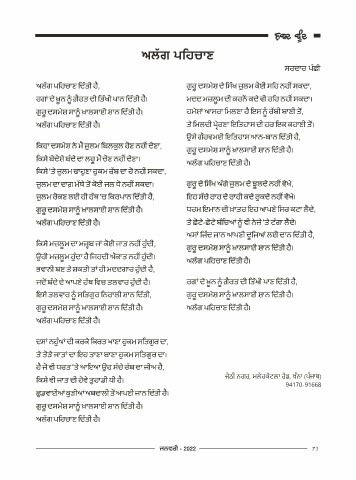 ਅਲੱਗ ਪਹਿਚਾਣ
ਸਰਦਾਰ ਪੰਛੀ
ਅਲੱਗ ਪਹਿਚਾਣ ਦਿੱਤੀ ਹੈ,
ਰਗਾਂ ਦੇ ਖ਼ੂਨ ਨੂੰ ਗੈਰਤ ਦੀ ਤਿੱਖੀ ਪਾਨ ਦਿੱਤੀ ਹੈ।
ਗੁਰੂ ਦਸਮੇਸ਼ ਸਾਨੂੰ ਖ਼ਾਲਸਾਈ ਸ਼ਾਨ ਦਿੱਤੀ ਹੈ।
ਅਲੱਗ ਪਹਿਚਾਣ ਦਿੱਤੀ ਹੈ।
ਕਿਹਾ ਦਸਮੇਸ਼ ਨੇ ਮੈਂ ਜ਼ੁਲਮ ਬਿਲਕੁਲ ਹੋਣ ਨਹੀਂ ਦੇਣਾ,
ਕਿਸੇ ਬੇਦੋਸ਼ੇ ਬੰਦੇ ਦਾ ਲਹੂ ਮੈਂ ਚੋਣ ਨਹੀਂ ਦੇਣਾ।
ਕਿਸੇ 'ਤੇ ਜ਼ੁਲਮ ਢਾਹੁਣਾ ਹੁਕਮ ਰੱਬ ਦਾ ਹੋ ਨਹੀਂ ਸਕਦਾ,
ਜ਼ੁਲਮ ਦਾ ਦਾਗ਼ ਮੱਥੇ ਤੋਂ ਕੋਈ ਜਲ ਧੋ ਨਹੀਂ ਸਕਦਾ।
ਜ਼ੁਲਮ ਰੋਕਣ ਲਈ ਹੀ ਹੱਥ 'ਚ ਕਿਰਪਾਨ ਦਿੱਤੀ ਹੈ,
ਗੁਰੂ ਦਸਮੇਸ਼ ਸਾਨੂੰ ਖ਼ਾਲਸਾਈ ਸ਼ਾਨ ਦਿੱਤੀ ਹੈ।
ਅਲੱਗ ਪਹਿਚਾਣ ਦਿੱਤੀ ਹੈ।
ਕਿਸੇ ਮਜ਼ਲੂਮ ਦਾ ਮਜ਼੍ਹਬ ਜਾਂ ਕੋਈ ਜਾਤ ਨਹੀਂ ਹੁੰਦੀ,
ਉਹੀ ਮਜ਼ਲੂਮ ਹੁੰਦਾ ਹੈ ਜਿਹਦੀ ਔਕਾਤ ਨਹੀਂ ਹੁੰਦੀ।
ਭਵਾਨੀ ਬਣ ਤੇ ਸ਼ਕਤੀ ਤਾਂ ਹੀ ਮਦਦਗਾਰ ਹੁੰਦੀ ਹੈ,
ਜਦੋਂ ਬੰਦੇ ਦੇ ਆਪਣੇ ਹੱਥ ਵਿਚ ਤਲਵਾਰ ਹੁੰਦੀ ਹੈ।
ਇਸੇ ਤਲਵਾਰ ਨੂੰ ਸਤਿਗੁਰ ਨਿਰਾਲੀ ਸ਼ਾਨ ਦਿੱਤੀ,
ਗੁਰੂ ਦਸਮੇਸ਼ ਸਾਨੂੰ ਖ਼ਾਲਸਾਈ ਸ਼ਾਨ ਦਿੱਤੀ ਹੈ।
ਅਲੱਗ ਪਹਿਚਾਣ ਦਿੱਤੀ ਹੈ।
ਦਸਾਂ ਨਹੁੰਆਂ ਦੀ ਕਰਕੇ ਕਿਰਤ ਖਾਣਾ ਹੁਕਮ ਸਤਿਗੁਰ ਦਾ,
ਤੇ ਤੋੜੋ ਜਾਤਾਂ ਦਾ ਇਹ ਤਾਣਾ ਬਾਣਾ ਹੁਕਮ ਸਤਿਗੁਰ ਦਾ।
ਹੈ ਜੋ ਵੀ ਧਰਤ 'ਤੇ ਆਇਆ ਉਹ ਸੱਚੇ ਰੱਬ ਦਾ ਜੀਅ ਹੈ,
ਕਿਸੇ ਵੀ ਜਾਤ ਦੀ ਹੋਵੇ ਤੁਹਾਡੀ ਧੀ ਹੈ।
ਛੁਡਵਾਈਆਂ ਕੁੜੀਆਂ ਅਬਦਾਲੀ ਤੋਂ ਆਪਣੇ ਜਾਨ ਦਿੱਤੀ ਹੈ।
ਗੁਰੂ ਦਸਮੇਸ਼ ਸਾਨੂੰ ਖ਼ਾਲਸਾਈ ਸ਼ਾਨ ਦਿੱਤੀ ਹੈ।
ਅਲੱਗ ਪਹਿਚਾਣ ਦਿੱਤੀ ਹੈ।
ਗੁਰੂ ਦਸਮੇਸ਼ ਦੇ ਸਿੱਖ ਜ਼ੁਲਮ ਕੋਈ ਸਹਿ ਨਹੀਂ ਸਕਦਾ,
ਮਦਦ ਮਜ਼ਲੂਮ ਦੀ ਕਰਨੋਂ ਕਦੇ ਵੀ ਰਹਿ ਨਹੀਂ ਸਕਦਾ।
ਹਮੇਸ਼ਾਂ ਆਸਰਾ ਮਿਲਣਾ ਹੈ ਇਸ ਨੂੰ ਰੱਬੀ ਬਾਣੀ ਤੋਂ,
ਤੇ ਮਿਲਦੀ ਪ੍ਰੇਰਣਾ ਇਤਿਹਾਸ ਦੀ ਹਰ ਇਕ ਕਹਾਣੀ ਤੋਂ।
ਉਸੇ ਗੌਰਵਮਈ ਇਤਿਹਾਸ ਆਨ-ਬਾਨ ਦਿੱਤੀ ਹੈ,
ਗੁਰੂ ਦਸਮੇਸ਼ ਸਾਨੂੰ ਖ਼ਾਲਸਾਈ ਸ਼ਾਨ ਦਿੱਤੀ ਹੈ।
ਅਲੱਗ ਪਹਿਚਾਣ ਦਿੱਤੀ ਹੈ।
ਗੁਰੂ ਦੇ ਸਿੱਖ ਅੱਗੇ ਜ਼ੁਲਮ ਦੇ ਝੂਲਦੇ ਨਹੀਂ ਵੇਖੇ,
ਇਹ ਸੱਚੇ ਰਾਹ ਦੇ ਰਾਹੀ ਕਦੇ ਰੁਕਦੇ ਨਹੀਂ ਵੇਖੇ।
ਧਰਮ ਇਮਾਨ ਦੀ ਖ਼ਾਤਰ ਇਹ ਆਪਣੇ ਸਿਰ ਕਟਾ ਲੈਂਦੇ,
ਤੇ ਛੋਟੇ-ਛੋਟੇ ਬੱਚਿਆਂ ਨੂੰ ਵੀ ਨੇਜ਼ੇ 'ਤੇ ਟੰਗਾ ਲੈਂਦੇ।
ਅਸਾਂ ਜਿੰਦ ਜਾਨ ਆਪਣੀ ਦੂਜਿਆਂ ਲਈ ਦਾਨ ਦਿੱਤੀ ਹੈ,
ਗੁਰੂ ਦਸਮੇਸ਼ ਸਾਨੂੰ ਖ਼ਾਲਸਾਈ ਸ਼ਾਨ ਦਿੱਤੀ ਹੈ।
ਅਲੱਗ ਪਹਿਚਾਣ ਦਿੱਤੀ ਹੈ।
ਰਗਾਂ ਦੇ ਖ਼ੂਨ ਨੂੰ ਗ਼ੈਰਤ ਦੀ ਤਿੱਖੀ ਪਾਣ ਦਿੱਤੀ ਹੈ,
ਗੁਰੂ ਦਸਮੇਸ਼ ਸਾਨੂੰ ਖ਼ਾਲਸਾਈ ਸ਼ਾਨ ਦਿੱਤੀ ਹੈ।
ਅਲੱਗ ਪਹਿਚਾਣ ਦਿੱਤੀ ਹੈ।
ਜੇਠੀ ਨਗਰ, ਮਲੇਰਕੋਟਲਾ ਰੋਡ, ਖੰਨਾ (ਪੰਜਾਬ)
94170-91668
ਜਨਵਰੀ - 2022
71